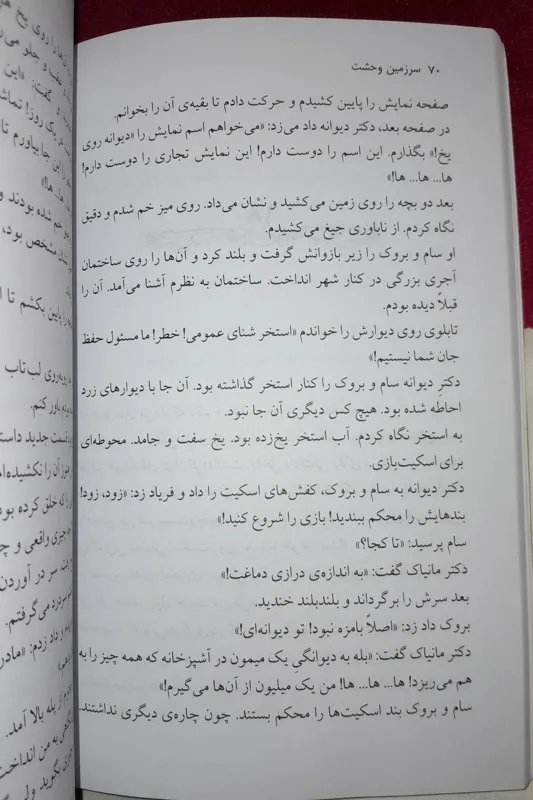 ۷۰ سرزمین وحشت
صفحه نمایش را پایین کشیدم و حرکت دادم تا بقیه‌ی آن را بخوانم.
در صفحه بعد، دکتر دیوانه داد می‌زد: «می‌خواهم اسم نمایش را «دیوانه روی
یخ!» بگذارم. این اسم را دوست دارم! این نمایش تجاری را دوست دارم!
ها... ها... ها!»
بعد دو بچه را روی زمین می‌کشید و نشان می‌داد. روی میز خم شدم و دقیق
نگاه کردم. از ناباوری جیغ می‌کشیدم.
او سام و بروک را زیر بازوانش گرفت و بلند کرد و آن‌ها را روی ساختمان
آجری بزرگی در کنار شهر انداخت. ساختمان به نظرم آشنا می‌آمد. آن را
قبلاً دیده بودم.
تابلوی روی دیوارش را خواندم «استخر شنای عمومی! خطر! ما مسئول حفظ
جان شما نیستیم!»
دکترِ دیوانه سام و بروک را کنار استخر گذاشته بود. آن جا با دیوارهای زرد
احاطه شده بود. هیچ کس دیگری آن جا نبود.
به استخر نگاه کردم. آب استخر یخ‌زده بود. یخ سفت و جامد. محوطه‌ای
برای اسکیت‌بازی.
دکتر دیوانه به سام و بروک، کفش‌های اسکیت را داد و فریاد زد: «زود، زود!
بندهایش را محکم ببندید! بازی را شروع کنید!»
سام پرسید: «تا کجا؟»
دکتر مانیاک گفت: «به اندازه‌ی درازی دماغت!»
بعد سرش را برگرداند و بلندبلند خندید.
بروک داد زد: «اصلاً بامزه نبود! تو دیوانه‌ای!»
دکتر مانیاک گفت: «بله به دیوانگیِ یک میمون در آشپزخانه که همه چیز را به
هم می‌ریزد! ها... ها... ها! من یک میلیون از آن‌ها می‌گیرم!»
سام و بروک بند اسکیت‌ها را محکم بستند. چون چاره‌ی دیگری نداشتند.